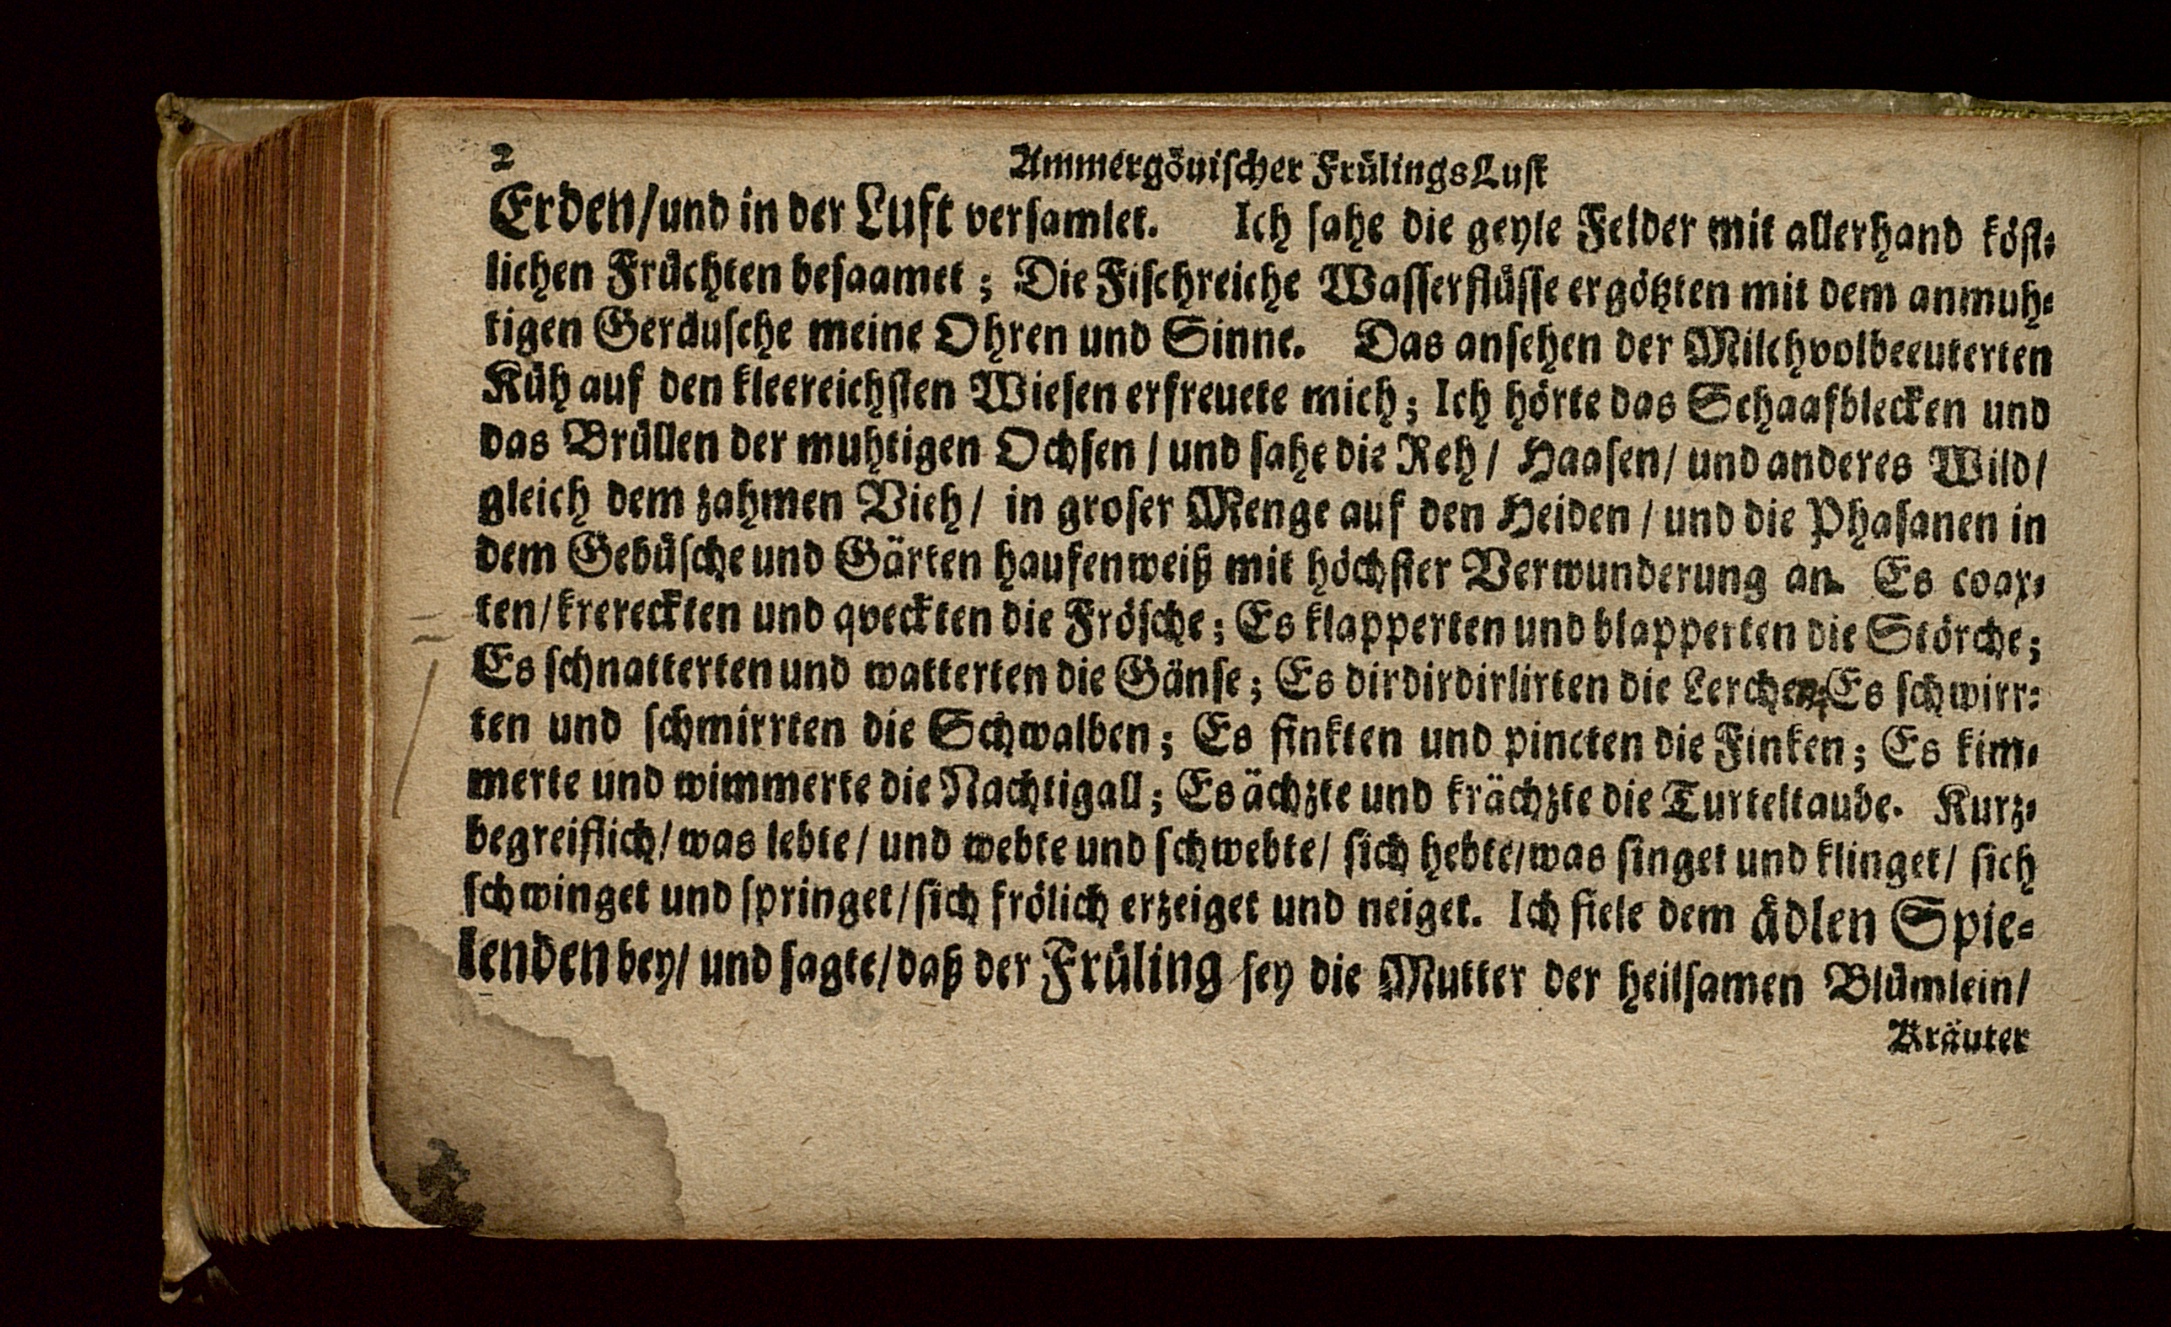 2
Ammergöuiſcher FrülingsLuſt
Erden/und in der Luft verſamlet. Ich ſahe die geyle Felder mit allerhand köſt-
lichen Früchten beſaamet; Die Fiſchreiche Waſſerflüſſe ergötzten mit dem anmuh-
tigen Geräuſche meine Ohren und Sinne. Das anſehen der Milchvolbeeuterten
Küh auf den kleereichſten Wieſen erfreuete mich; Ich hörte das Schaafblecken und
das Brüllen der muhtigen Ochſen / und ſahe die Reh / Haaſen / und anderes Wild /
gleich dem zahmen Vieh / in groſer Menge auf den Heiden / und die Phaſanen in
dem Gebüſche und Gärten haufenweiß mit höchſter Verwunderung an. Es coax-
ten/krereckten und qveckten die Fröſche; Es klapperten und blapperten die Störche;
Es ſchnatterten und watterten die Gänſe; Es dirdirdirlirten die Lerchen; Es ſchwirr-
ten und ſchmirrten die Schwalben; Es finkten und pincten die Finken; Es kim-
merte und wimmerte die Nachtigall; Es ächzte und krächzte die Turteltaube. Kurz-
begreiflich/was lebte / und webte und ſchwebte / ſich hebte/was ſinget und klinget / ſich
ſchwinget und ſpringet/ſich frölich erzeiget und neiget. Ich fiele dem ädlen Spie-
lenden bey / und ſagte/daß der Früling ſey die Mutter der heilſamen Blümlein /
Kräuter